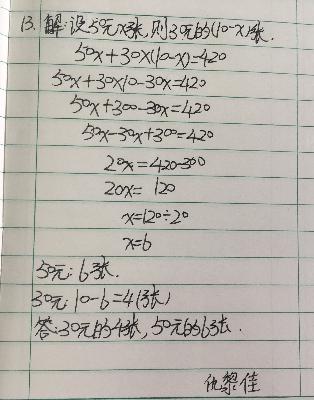 13. 解:设50元x张,则30元的(10-x)张.
50x+30×(10-x)=420
50x+30×10-30x=420
50x+300-30x=420
50x-30x+300=420
20x=420-300
20x= 120
x=120÷20
x=6
50元:6张.
30元:10-6=4(张)
答:30元的4张,50元的6张.
仇黎佳